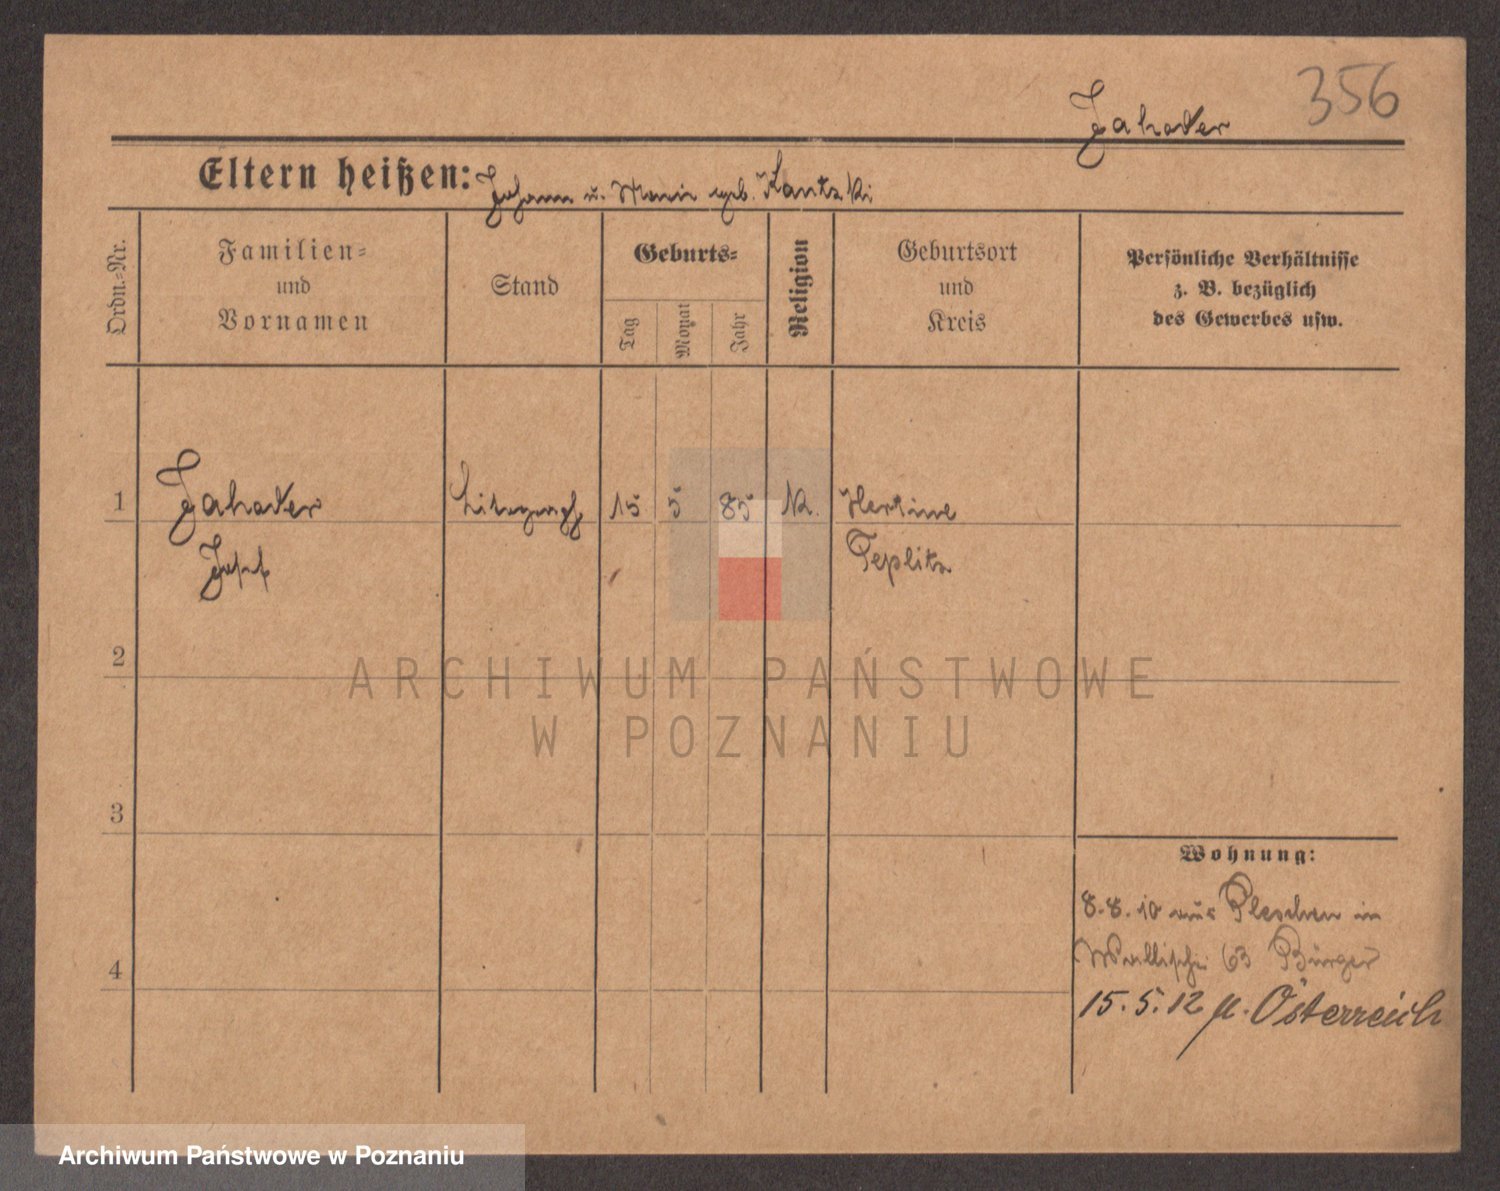 356
Zahorler
Eltern heißen: Johann u. Marie geb. Kantzki
Ordn.-Nr.
Familien-
und
Vornamen
Stand
Geburts-
Tag
Monat
Jahr
Religion
Geburtsort
und
Kreis
Persönliche Verhältnisse
z. B. bezüglich
des Gewerbes usw.
1
Josef
15 5 85 K.
Hertine
Teplitz
2
3
4
Wohnung:
8.8.10 aus Pleschen in
Wallischei 63 Bürger
15.5.12 n. Österreich
ARCHIWUM PAŃSTWOWE
W POZNANIU
Archiwum Państwowe w Poznaniu